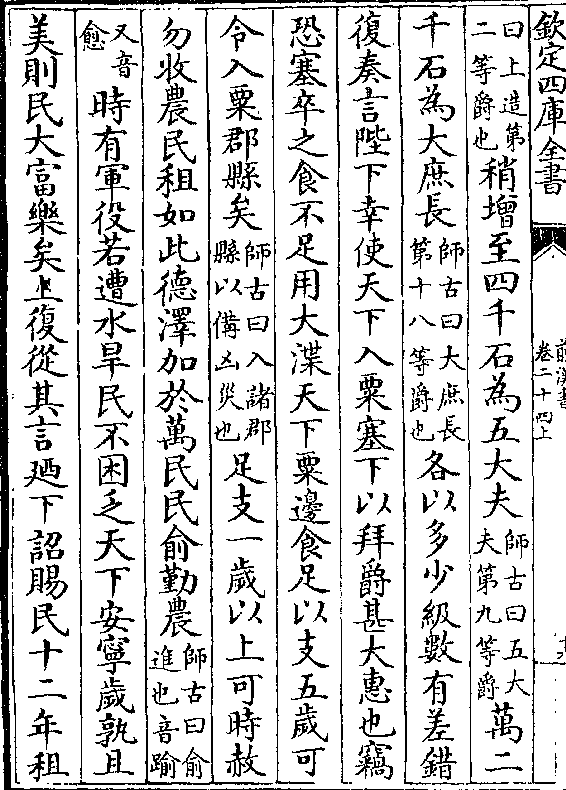 欽定四庫全書
前漢書
卷二十四上
曰上造第二等爵也稍增至四千石為五大夫師古曰五大夫第九等爵萬二
千石為大庶長師古曰大庶長第十八等爵也各以多少級數有差錯
復奏言陛下幸使天下入粟塞下以拜爵甚大惠也竊
恐塞卒之食不足用大渫天下粟邊食足以支五歲可
令入粟郡縣矣師古曰入諸郡縣以備凶災也足支一歲以上可時赦
勿收農民租如此德澤加於萬民民俞勤農師古曰俞進也音踰
又音愈時有軍役若遭水旱民不困乏天下安寧歲孰且
美則民大富樂矣上復從其言廼下詔賜民十二年租